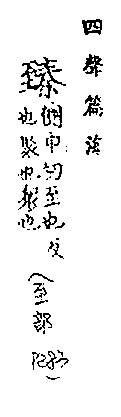 四聲篇海
臻側巾切至也及
也聚也衆也
（至部